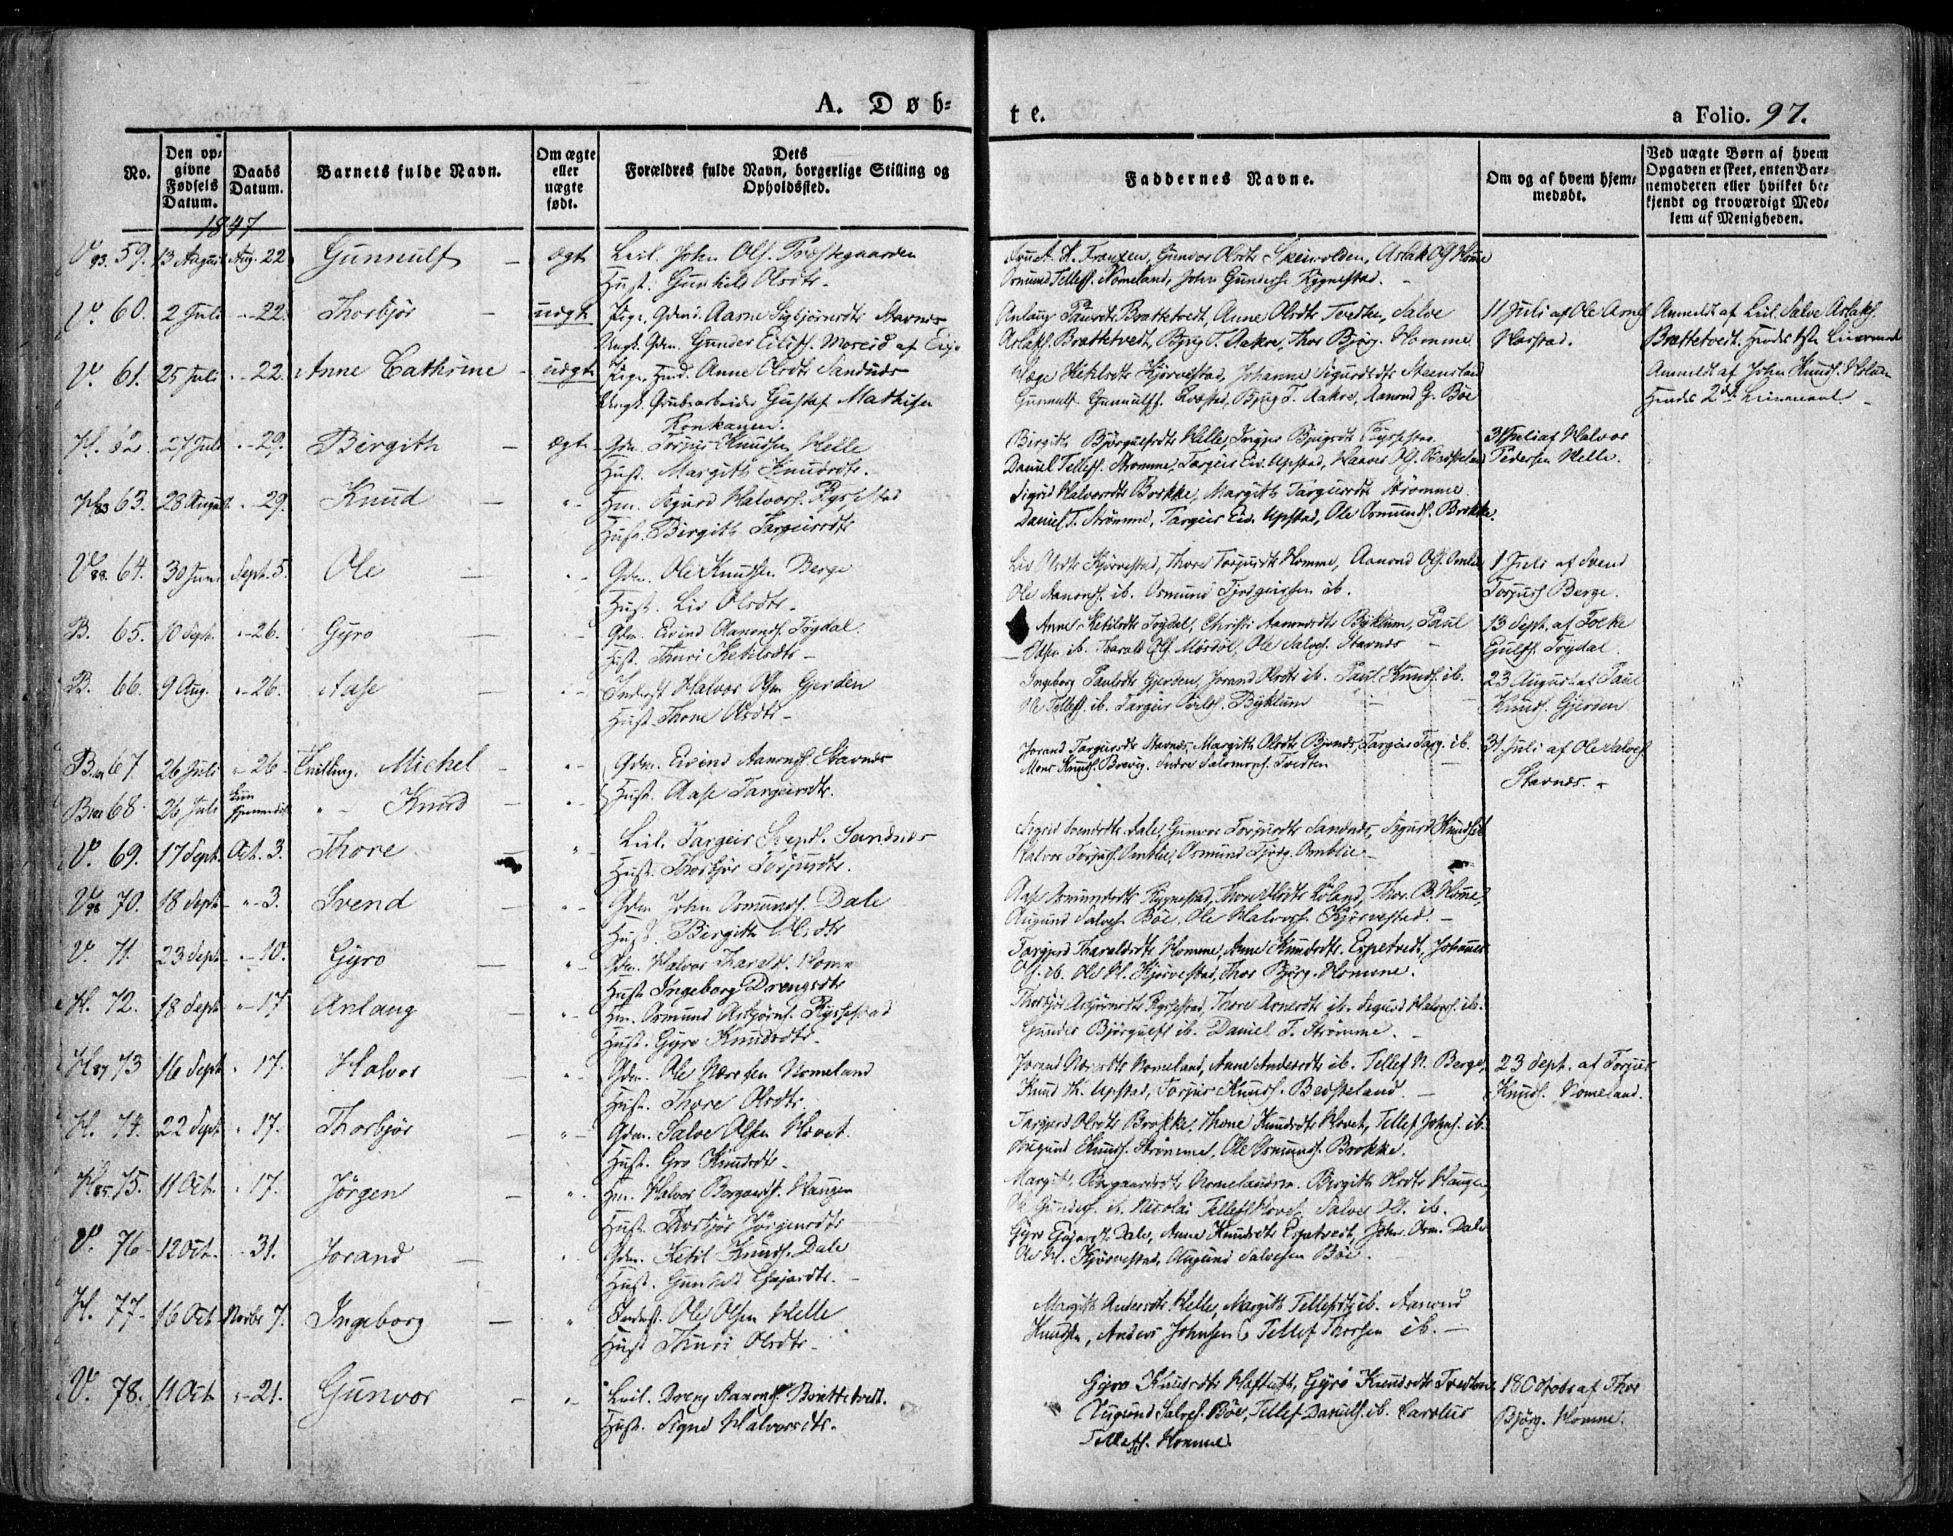 A. Døb-
te.
a Folio. 97.
No.
Den op-
givne
Fødsels
Datum.
Daabs
Datum.
Barnets fulde Navn.
Om ægte
eller
uægte
født.
Dets
Forældres fulde Navn, borgerlige Stilling og
Opholdssted.
Faddernes Navne.
Om og af hvem hjem-
medøbt.
Ved uægte Børn af hvem
Opgaven er skeet, enten Bar-
nemoderen eller hvilket be-
kjendt og troværdigt Med-
lem af Menigheden.
1847
V. 93. 59. 13 August Aug. 22 Gunnulf - ægt Leil. John Ols. Præstegaarden
Hust. Gunhild Olsdtr.
Gunvor Olsdtr Aslak Ols. Homme
Osmund Tellefs. Nomeland, John Gunders. Rygnestad.
V. 60. 2 Juli - 22. Thorbjør - uægt Pige, Aarne Sigbjørnsdtr Stavnes
Ungk. Gunder Eilifs. Moreid af
Anlaug Brattetvedt, Anne Olsdtr Tvedten, Salve
Aslaks. Brattetvedt, Bjug T. Aakre, Thor Bjørg. Homme
11 Juli af Ole Arnes
Harstad.
Anmeldt af Leil. Salve Aslaks.
Brattetvedt. Hendes 1ste Leiermaal
V. 61. 25 Juli - 22. Anne Cathrine - uægt Pige, Anne Olsdtr Sandnes
Ungk. Grubearbeider Gustaf Mathisen
Konkanen.
Kjørvestad, Johanne Sigurdsdtr
Gunnulf Gunnulfs. Bjug T. Aakre, Aanond G. Bøe
Anmeldt af John Knuds. Holen
Hendes 2det Leiermaal
H. 62. 27 Juli - 29. Birgith - ægt Gdm. Torjus Knudsen Helle
Hust. Margith Knudsdtr.
Birgith Bjørgulfsdtr Helle, Bjugsdtr Rysstad
Daniel Tellefs. Strømme, Targeir Eiv. Upstad,
31 Juli af Halvor
Pedersen Helle.
H. 83 63. 28 August - 29. Knud - Hm. Sigurd Halvors. Rysstad
Hust. Birgith Targeirsdtr
Sigrid Halvorsdtr Brokke, Margith Targeirsdtr Strømme.
Daniel T. Strømme, Targeir Eiv. Upstad, Ole Osmunds. Brokke.
V. 88. 64. 30 Juni Sept. 5. Ole - Gdm. Ole Knudsen Berge
Hust. Liv Olsdtr.
Liv Olsdtr Kjørvestad, Thore Torjusdtr Homme, Aanond Ols. Omlie
Ole Aanonds. ib. Osmund Tjodgeirssen ib.
1 Juli af Svend
Torjuss. Berge.
B. 65. 10 Sept. - 26. Gyro - Gdm. Eivind Aanonds. Trydal
Hust. Thuri Ketilsdtr
Anne Ketilsdtr Trydal, Christi Aanondsdtr Byklum, Paul
Olsen ib. Tharald Ols. Mosdøl, Ole Salves. Stavnes
13 Sept. af Folke
Gulls. Trydal.
B. 66. 9 Aug. - 26. Aase - Inderst Halvor Olsen Gjerden
Hust. Thone Olsdtr
Ingeborg Paulsdtr Gjerden, Jorand Olsdtr ib. Paul Knuds. ib.
Ole Tellefs. ib. Targeir Byklum
23 August af Paul
Knuds. Gjerden
B. 67 26 Juli - 26. Tvilling. Michel - Gdm. Eivind Aanonds. Stavnes
Hust. Aase Targeirsdtr.
Jorand Targeirsdtr Stavnes, Margith Olsdtr Targeir Targ. ib.
Mons Knuds. Breivig. Salomons. Tveiten
31 Juli af Ole Salves.
Stavnes.
B. 68. 26 Juli Knud
V. 69. 17 Sept. Oct. 3. Thore - Leil. Targeir Svends. Sandnes
Hust. Thorbjør Torjusdtr.
Sigrid Svendsdtr Dale, Gunvor Torjusdtr Sandnes, Sigurd Knuds. ib
Halvor Torjuss. Omblie, Osmund Tjørg. Omblie
V. 98 70. 18 Sept - 3. Svend - Gdm. John Osmunds. Dale
Hust. Birgith Olsdtr
Aase Osmundsdtr Rygnestad, Thone Olsdtr Løland, Thor. B. Homme,
Augund Salves. Bøe, Ole Halvors. Kjørvestad.
V. 71. 23 Sept - 10. Gyro - Gdm. Halvor Tharalds. Homme
Hust. Ingeborg Drengsdtr
Targjerd Tharaldsdtr Homme, Anne Knudsdtr. Espetvedt, Johannes
Ols. ib. Ole H. Kjørvestad, Thor Bjørg. Homme.
H. 72. 18 Sept - 17 Anlaug - Hm. Osmund Asbjørns. Rysstad
Hust. Gyro Knudsdtr.
Thorbjør Asbjørnsdtr Rysstad, Thore Arnesdtr ib. Sigurd Halvors. ib.
Gunder Bjørgulfs. ib. Daniel T. Strømme.
H. 87 73 16 Sept - 17. Halvor - Gdm. Ole Næresen Nomeland
Hust. Thore Olsdtr.
Jorand Næresdtr Nomeland, Anne Andersdtr ib. Tellef N. Berge,
Knud K. Upstad, Torjus Knuds. Besteland.
23 Sept. af Torjus
Knuds. Nomeland.
H. 74. 22 Sept - 17. Thorbjør - Gdm. Salve Olsen Hovet.
Hust. Gro Knudsdtr.
Targjerd Olsdtr Brokke, Thone Knudsdtr Hovet, Tellef Johns. ib.
Augund Knuds. Strømme, Ole Osmunds. Brokke.
H. 85. 75. 11 Oct. - 17. Jörgen - Hm. Halvor Borgards. Haugen
Hust. Thorbjør Jørgensdtr
Margith Borgaardsdtr Nomelandsm. Birgith Olsdtr Haugen,
Ole Gunders. ib. Nicolai Tellefs. Hovet, Salve Ol. ib.
V. 76 12 Oct. - 31. Jorand - Gdm. Ketil Knuds. Dale
Hust. Gunhild
Gyro Dale, Anne Knudsdtr Espetvedt, John Osm. Dale
Ole H. Kjørvestad, Augund Salvesen Bøe.
H. 77 16 Oct Novbr 7. Ingeborg - Inderst. Ole Olsen Helle
Hust. Thuri Olsdtr
Margith Andersdtr Helle, Margith Tellefsdtr ib. Aanond
Knudsen, Anders Johnsen, Tellef Thorsen ib.
V. 78. 11 Oct - 21. Gunvor - Leil. Dreng Aanonds. Brattetvedt.
Hust. Signe Halvorsdtr.
Gyro Knudsdtr Gyro Knudsdtr Tvedten,
Augund Salves. Bøe, Tellef Daniels. ib. Carolus
Tellefs. Homme.
18 Octobr af Thor
Bjørg. Homme.